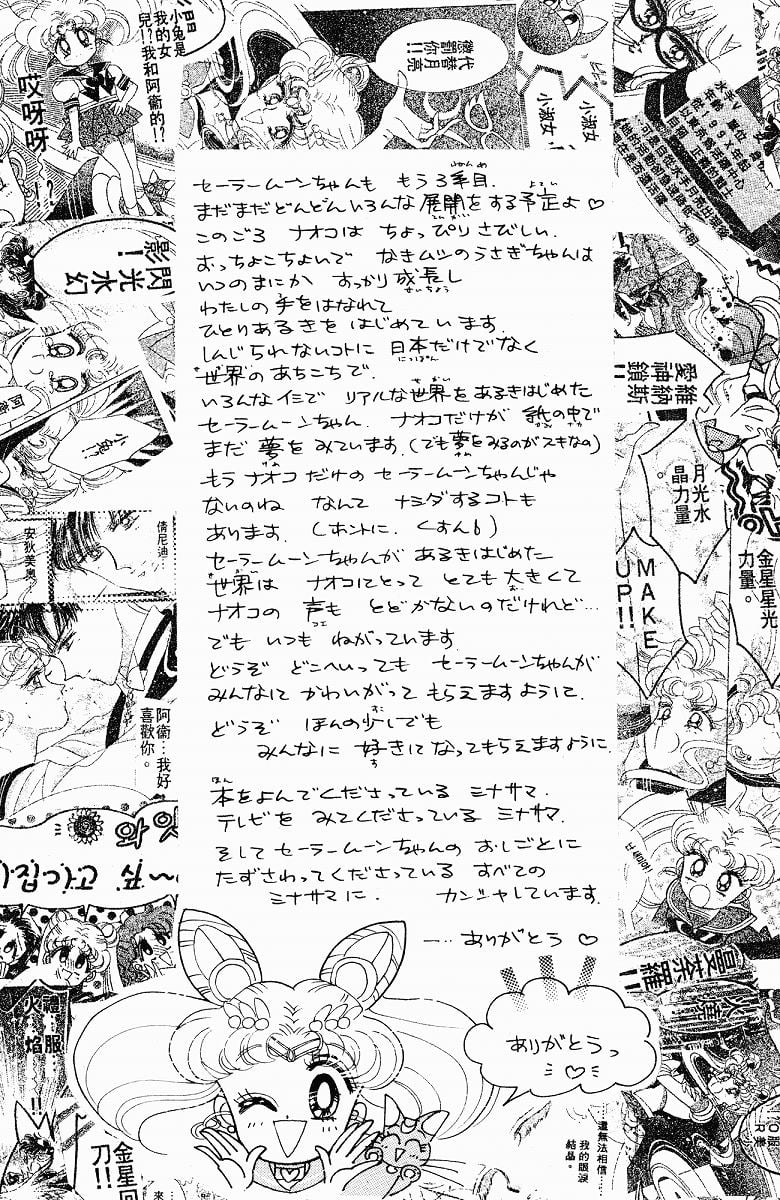 セーラームーンちゃんも もう3年目.
まだまだどんどんいろんな展開をする予定よ♡
このごろ ナオコは ちょっぴりさびしい.
おっちょこちょいで なきムシのうさぎちゃんは
いつのまにか すっかり成長し
わたしの手をはなれて
ひとりあるきを はじめています.
しんじられないコトに 日本だけでなく
世界のあちこちで.
いろんなイミで リアルな世界をあるきはじめた
セーラームーンちゃん. ナオコだけが 紙の中で
まだ 夢を みています.(でも夢をみるのがスキなの)
もう ナオコだけの セーラームーンちゃんじゃ
ないのね なんて ナミダするコトも
あります. (ホントに. くすん6)
セーラームーンちゃんが あるきはじめた
世界は ナオコにとって とても 大きくて
ナオコの 声も とどかないのだけれど…
でも いつも ねがっています
どうぞ どこへいっても セーラームーンちゃんが
みんなに かわいがって もらえますように.
どうぞ ほんの少しでも
みんなに 好きになってもらえますように.
本をよんでくださっている ミナサマ.
テレビを みてくださっている ミナサマ.
そして セーラームーンちゃんの おしごとに
たずさわってくださっている すべての
ミナサマに. カンシャしています.
ー…ありがとう ♡
ありがとうっ
♡
小兔是我的女兒!?我和阿衛的!?
哎呀呀
!?
代替月亮懲罰你!!
小淑女
小淑女
影!
閃光水幻
小兔?!
愛維納神鎖斯!!
月光水晶力量。
金星星光力量。
MAKE
UP!!
倩尼迪
安狄美奥
阿衛…我好喜歡你。
曼奈羅!!
禮服
火焰
!!
金星回
刀!!
還無法相信…我的眼淚結晶。